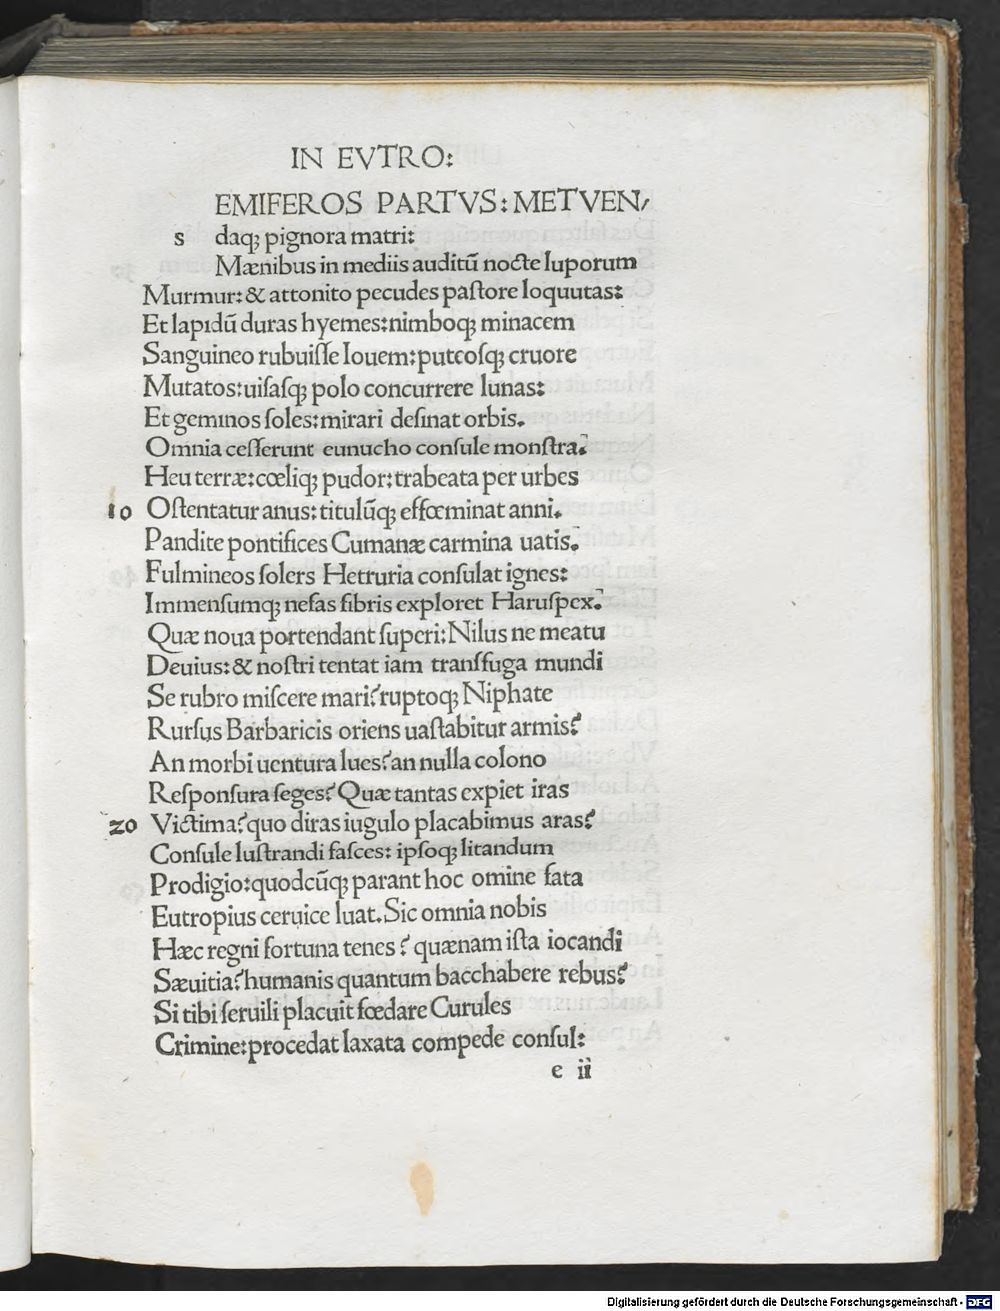 IN EVTRO:
EMIFEROS PARTVS: METVEN,
s daq; pignora matri:
Mænibus in mediis auditū nocte luporum
Murmur: & attonito pecudes paſtore loquutas:
Et lapidū duras hyemes: nimboq; minacem
Sanguineo rubuiſſe Iouem: puteoſq; cruore
Mutatos: uiſaſq; polo concurrere lunas:
Et geminos ſoles: mirari deſinat orbis.
Omnia ceſſerunt eunucho conſule monſtra.
Heu terræ: cœliq; pudor: trabeata per urbes
10 Oſtentatur anus: titulūq; effœminat anni.
Pandite pontifices Cumanæ carmina uatis.
Fulmineos ſolers Hetruria conſulat ignes:
Immenſumq; nefas fibris exploret Haruſpex.
Quæ noua portendant ſuperi: Nilus ne meatu
Deuius: & noſtri tentat iam tranſfuga mundi
Se rubro miſcere mari? ruptoq; Niphate
Rurſus Barbaricis oriens uaſtabitur armis?
An morbi uentura lues? an nulla colono
Reſponſura ſeges? Quæ tantas expiet iras
20 Victima? quo diras iugulo placabimus aras?
Conſule luſtrandi faſces: ipſoq; litandum
Prodigio: quodcūq; parant hoc omine fata
Eutropius ceruice luat. Sic omnia nobis
Hæc regni fortuna tenes? quænam iſta iocandi
Sæuitia? humanis quantum bacchabere rebus?
Si tibi ſeruili placuit fœdare Curules
Crimine: procedat laxata compede conſul:
e ii
Digitalisierung gefördert durch die Deutsche Forschungsgemeinschaft - DFG